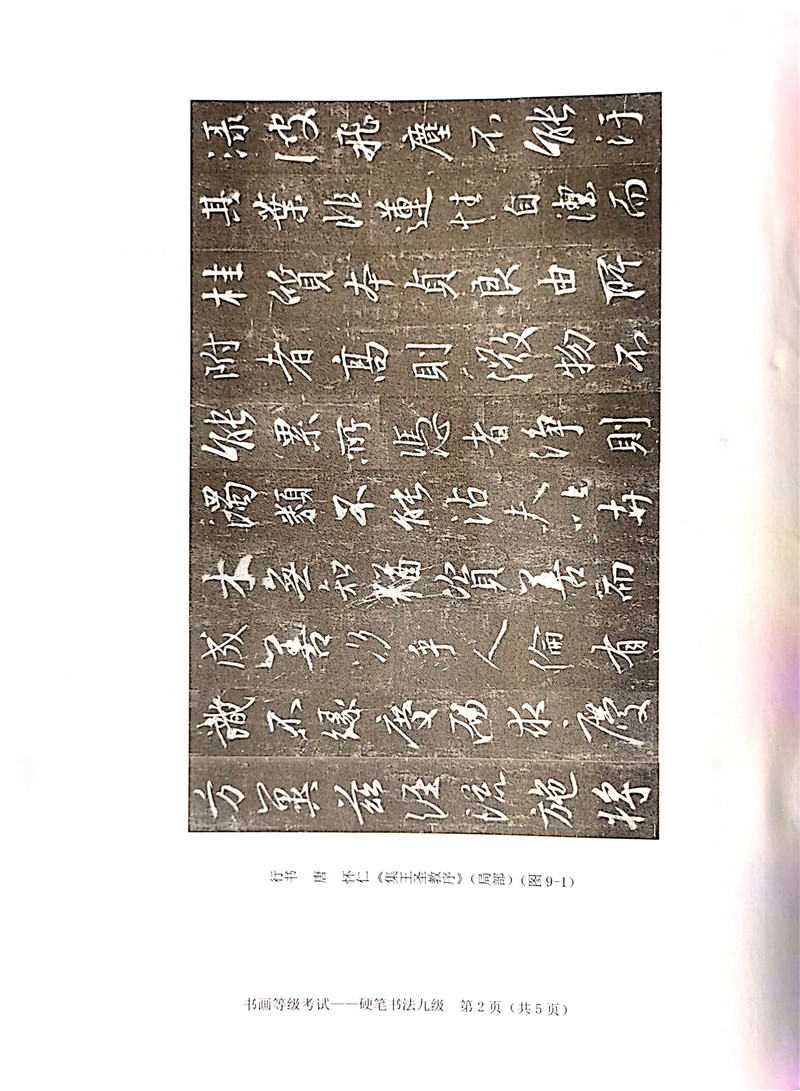 渌波飛塵不能汙
其葉非蓮性自潔而
桂質本貞良由所
附者高則微物不
能累所憑者淨則
濁類不能沾夫以卉
木無知猶資善而
成善況乎人倫有
識不緣慶而求慶
方冀茲經流施將
行书 唐 怀仁《集王圣教序》(局部)(图9-1)
书画等级考试——硬笔书法九级 第2页(共5页)